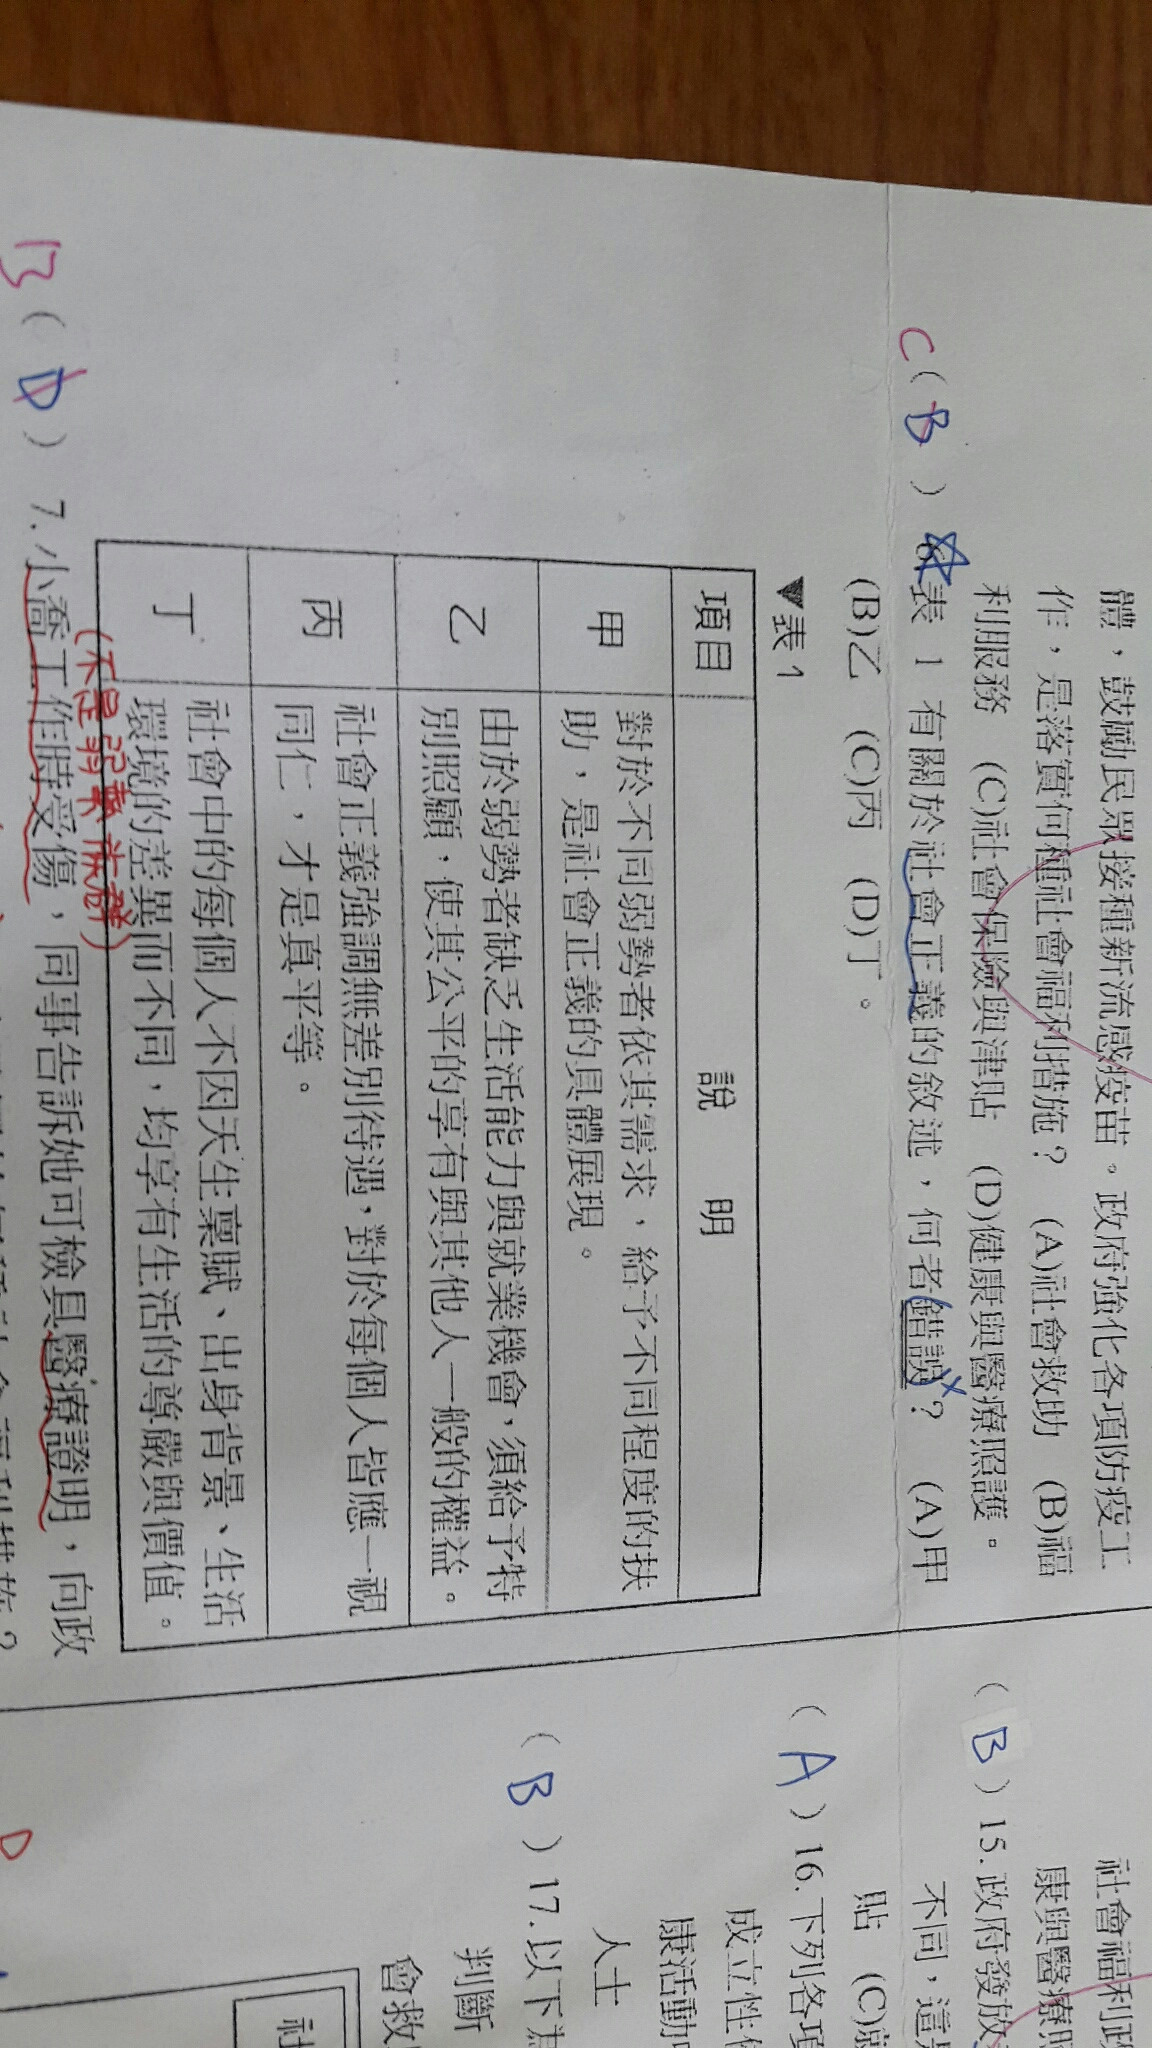 體，鼓勵民眾接種新流感疫苗。政府強化各項防疫工
作，是落實何種社會福利措施？ (A)社會救助 (B)福
利服務 (C)社會保險與津貼 (D)健康與醫療照護。
C ( B ) 表 1 有關於社會正義的敘述，何者錯誤？ (A)甲
(B)乙 (C)丙 (D)丁。
▼表 1
項目 說 明
甲 對於不同弱勢者依其需求，給予不同程度的扶
助，是社會正義的具體展現。
乙 由於弱勢者缺乏生活能力與就業機會，須給予特
別照顧，使其公平的享有與其他人一般的權益。
丙 社會正義強調無差別待遇，對於每個人皆應一視
同仁，才是真平等。
丁 社會中的每個人不因天生稟賦、出身背景、生活
環境的差異而不同，均享有生活的尊嚴與價值。
(不是弱勢族群)
B ( D ) 7.小喬工作時受傷，同事告訴她可檢具醫療證明，向政
社會福利政
康與醫療照
( B ) 15.政府發放
不同，這是
貼 (C)就
( A ) 16.下列各項
成立性
康活動中
人士
( B ) 17.以下為
判斷
會救
社
D